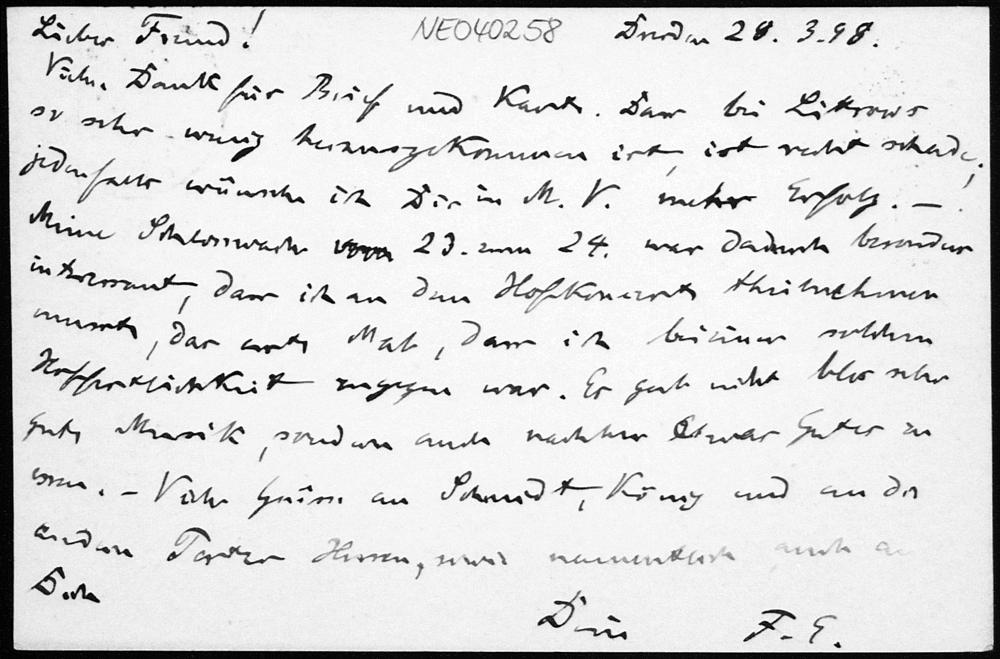 Lieber Freund! NEO40258 Dresden 28. 3. 98.
Viele Dank für Brief und Karte. Dass bei Littrows
so sehr wenig herausgekommen ist, ist recht schade;
jedenfalls wünsche ich Dir in M. V. mehr Erfolg. —
Meine Schlosswache vom 23. zum 24. war dadurch besonders
interessant, dass ich an dem Hofkonzerte theilnehmen
musste, das erste Mal, dass ich bei einer solchen
Hoffestlichkeit zugegen war. Es gab nicht blos sehr
gute Musik, sondern auch nachher etwas Gutes zu
essen. — Viele Grüsse an Schmidt, König und an die
andern Herren, sowie namentlich auch an
Dich
Dein F. E.